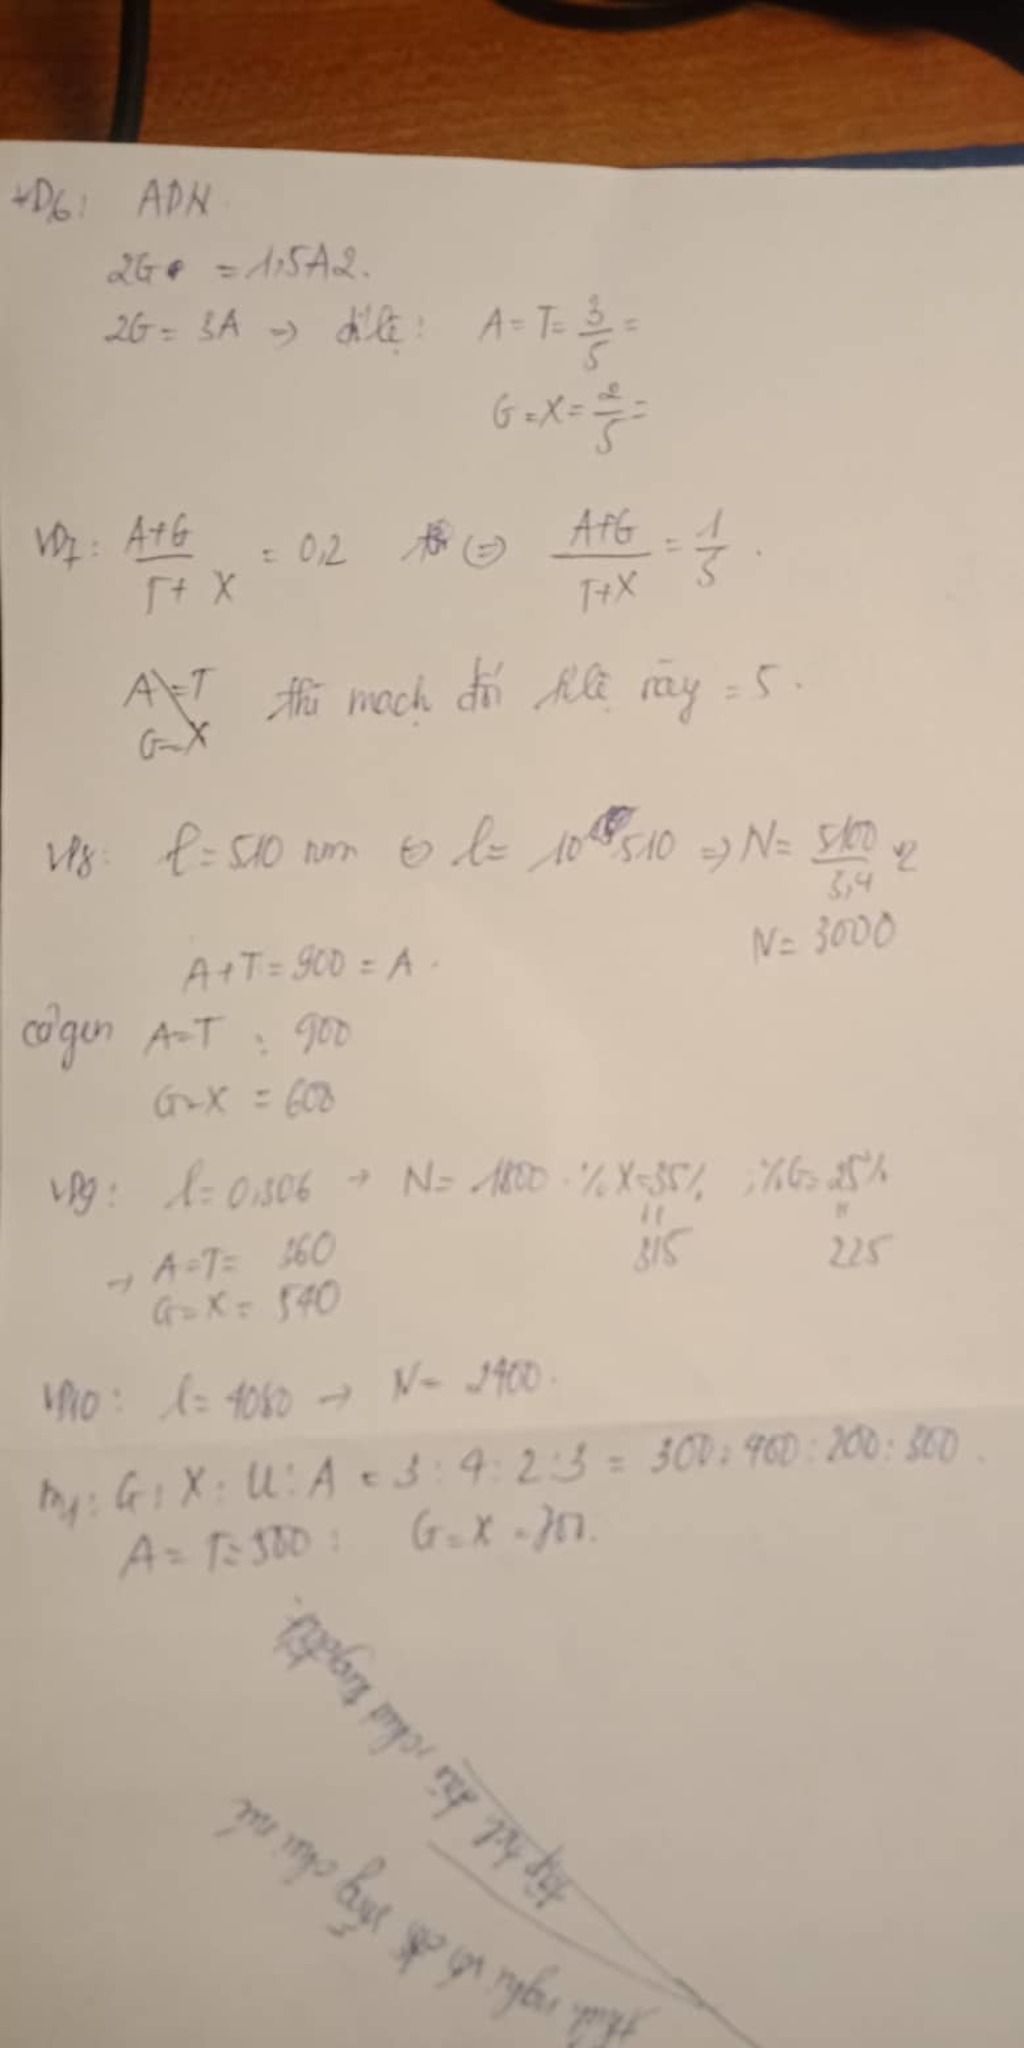 VD6: ADN
2G = 1,5A2.
2G = 3A => tỉ lệ: A = T = 3/5 =
G = X = 2/5 =
VD7: A+G/T+X = 0,2 <=> A+G/T+X = 1/5.
A = T
G = X
thì mạch đối tỉ lệ này = 5.
VD8: l = 510 nm <=> l = 10 510 => N = 5100/3,4 x2
N = 3000
A+T = 900 = A.
cả gen A=T : 900
G=X = 600
VD9: l = 0,306 -> N = 1800. %X = 35% ; %G = 25%
315 225
-> A=T= 360
G=X= 540
VD10: l = 4080 -> N = 2400.
m1: G : X : U : A = 3 : 4 : 2 : 3 = 300 : 400 : 200 : 300.
A = T = 500 : G = X = 700.